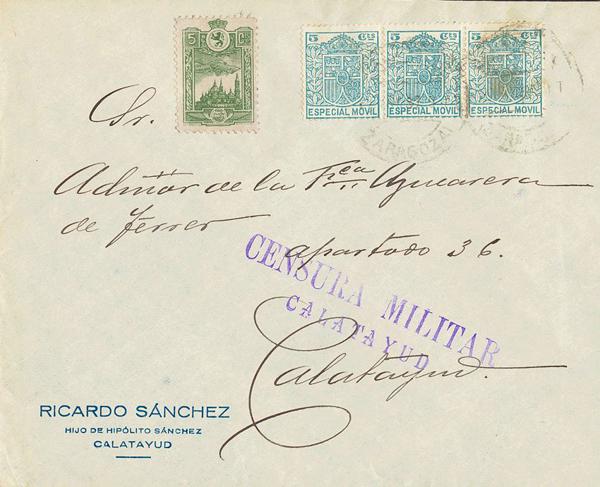 5 Cs
5 Cts
ESPECIAL MÓVIL
5 Cts
ESPECIAL MÓVIL
5 Cts
ESPECIAL MÓVIL
ZARAGOZA
Sr.
Admór de la Fca Azucarera
de Ferrer
apartado 36.
CENSURA MILITAR
CALATAYUD
Calatayud.
RICARDO SÁNCHEZ
HIJO DE HIPÓLITO SÁNCHEZ
CALATAYUD